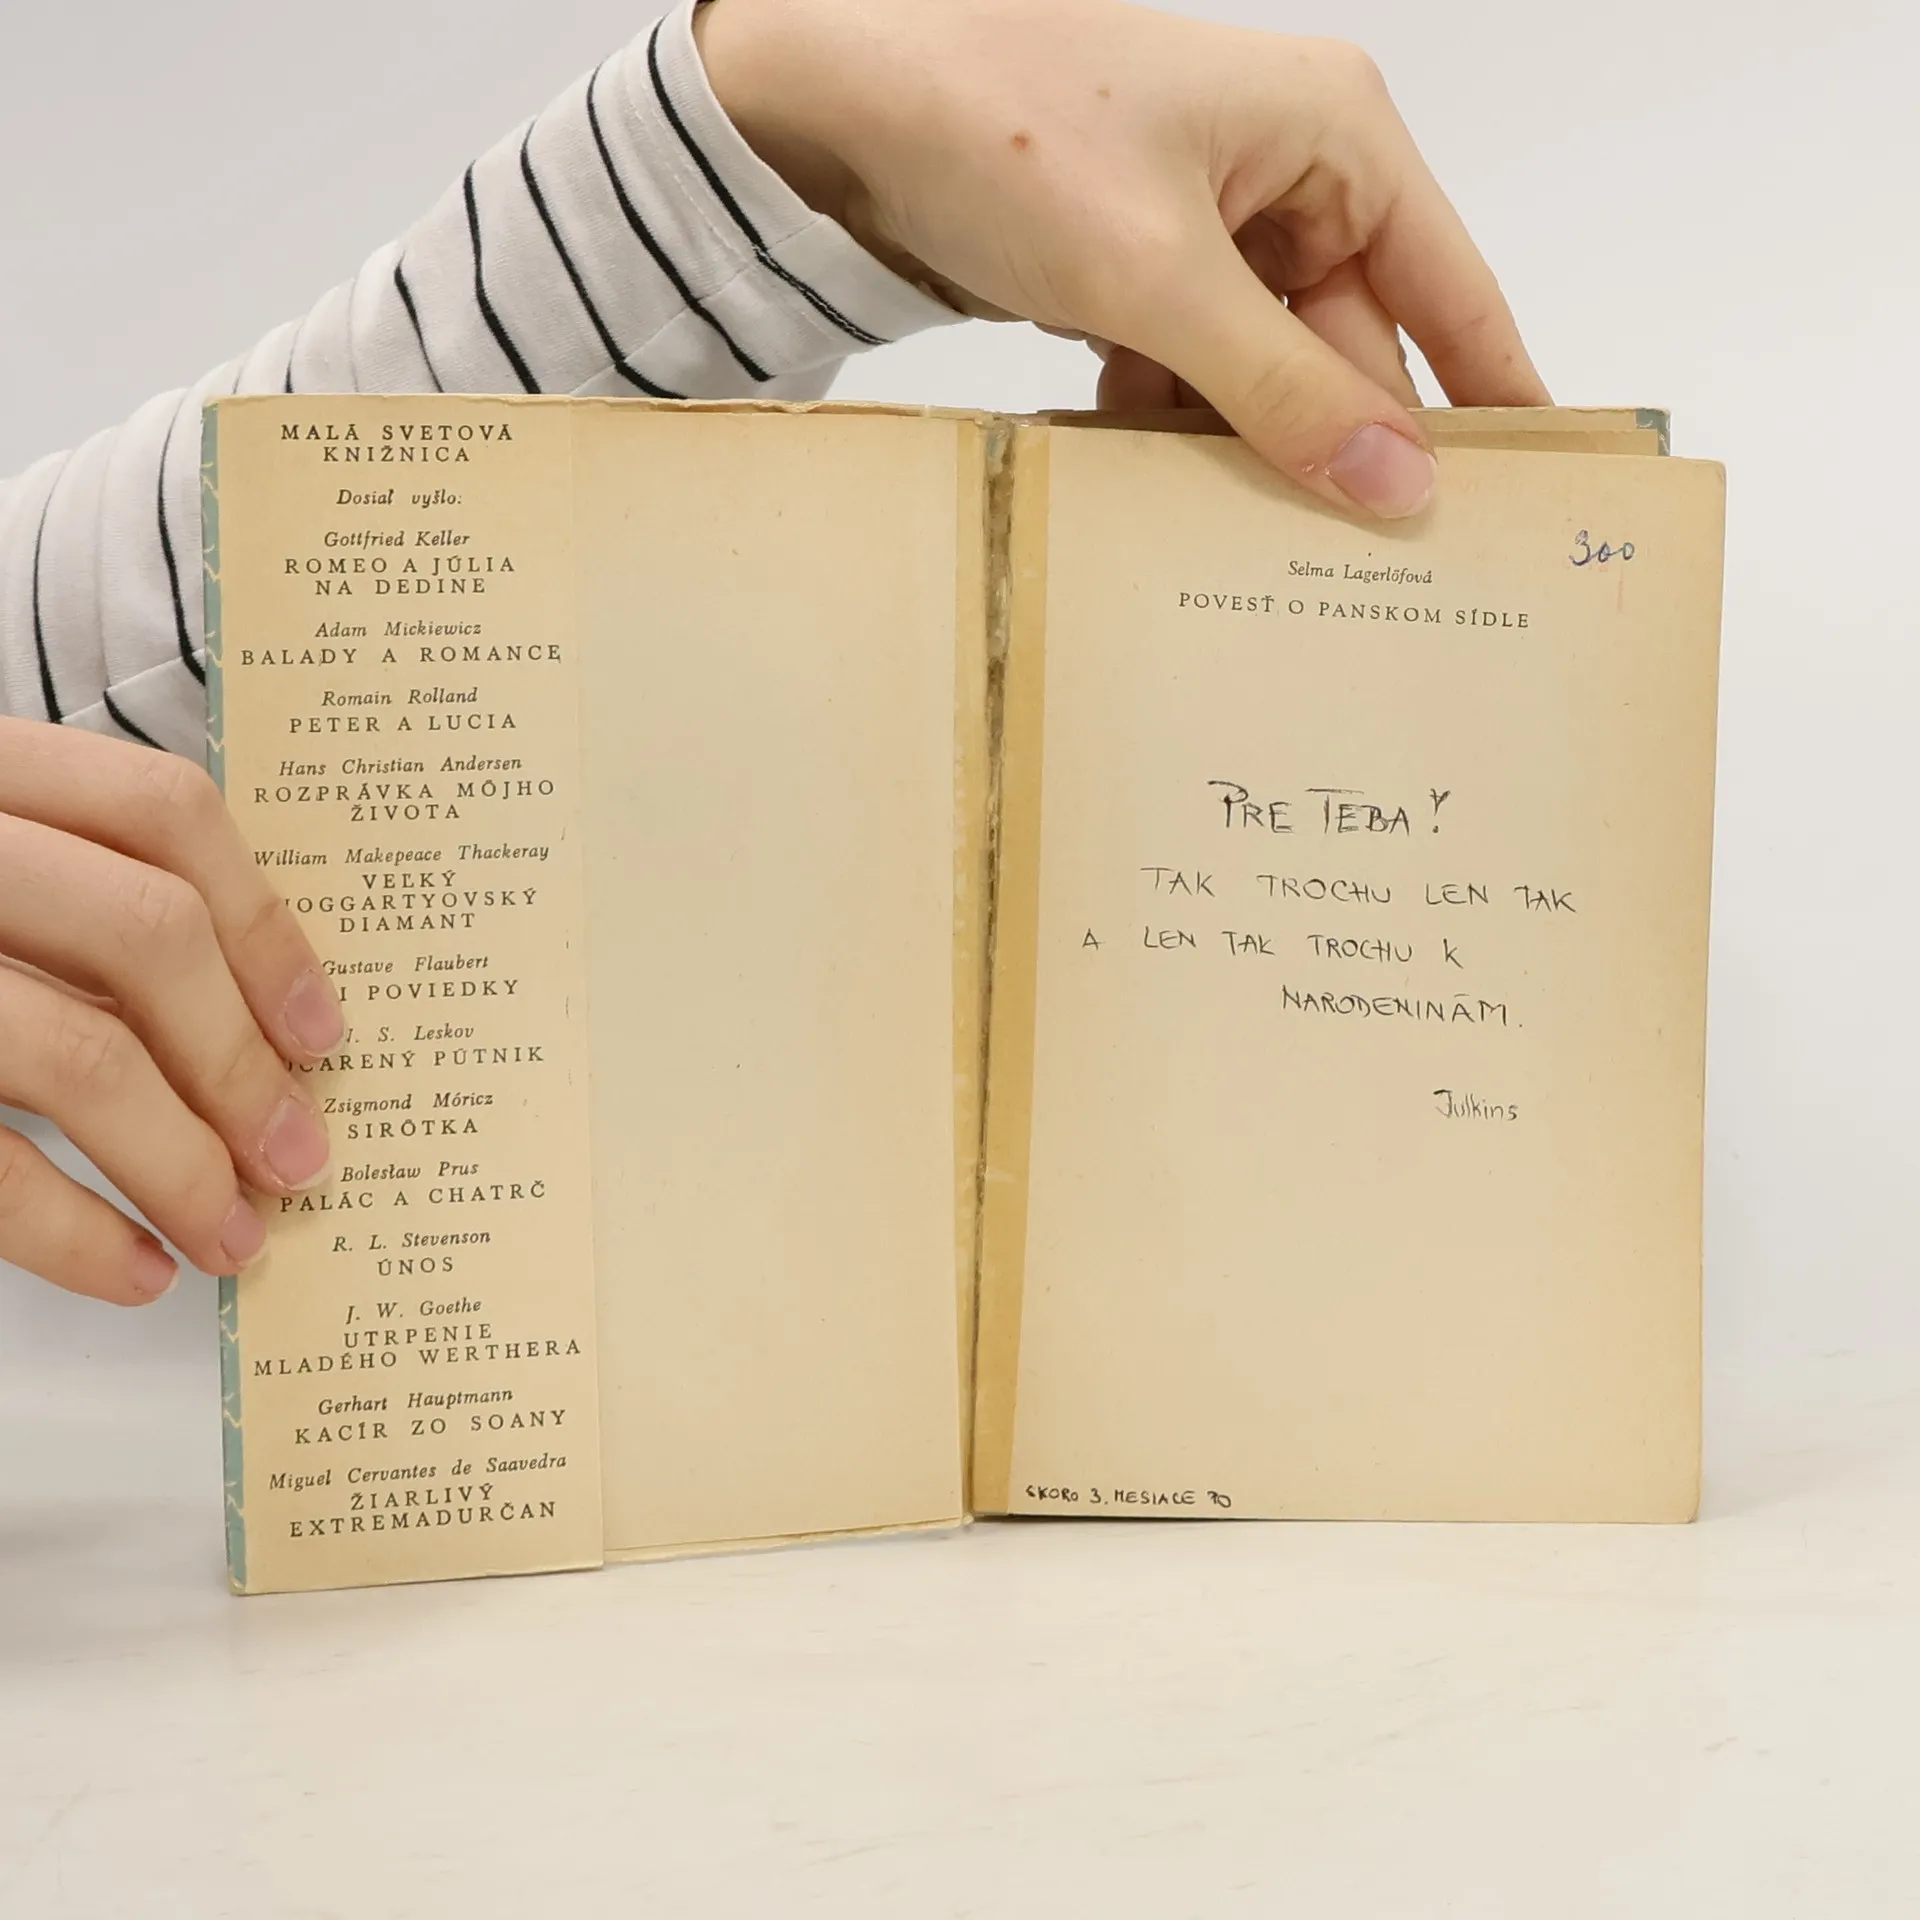 MALÁ SVETOVÁ
KNIŽNICA
Dosiaľ vyšlo:
Gottfried Keller
ROMEO A JÚLIA
NA DEDINE
Adam Mickiewicz
BALADY A ROMANCE
Romain Rolland
PETER A LUCIA
Hans Christian Andersen
ROZPRÁVKA MÔJHO
ŽIVOTA
William Makepeace Thackeray
VEĽKÝ
OGGARTYOVSKÝ
DIAMANT
Gustave Flaubert
I POVIEDKY
S. Leskov
ČARENÝ PÚTNIK
Zsigmond Móricz
SIRÔTKA
Bolesław Prus
PALÁC A CHATRČ
R. L. Stevenson
ÚNOS
J. W. Goethe
UTRPENIE
MLADÉHO WERTHERA
Gerhart Hauptmann
KACÍR ZO SOANY
Miguel Cervantes de Saavedra
ŽIARLIVÝ
EXTREMADURČAN
300
Selma Lagerlöfová
POVESŤ O PANSKOM SÍDLE
PRE TEBA!
TAK TROCHU LEN TAK
A LEN TAK TROCHU K
NARODENINÁM.
Julkins
SKORO 3. MESIACE PO